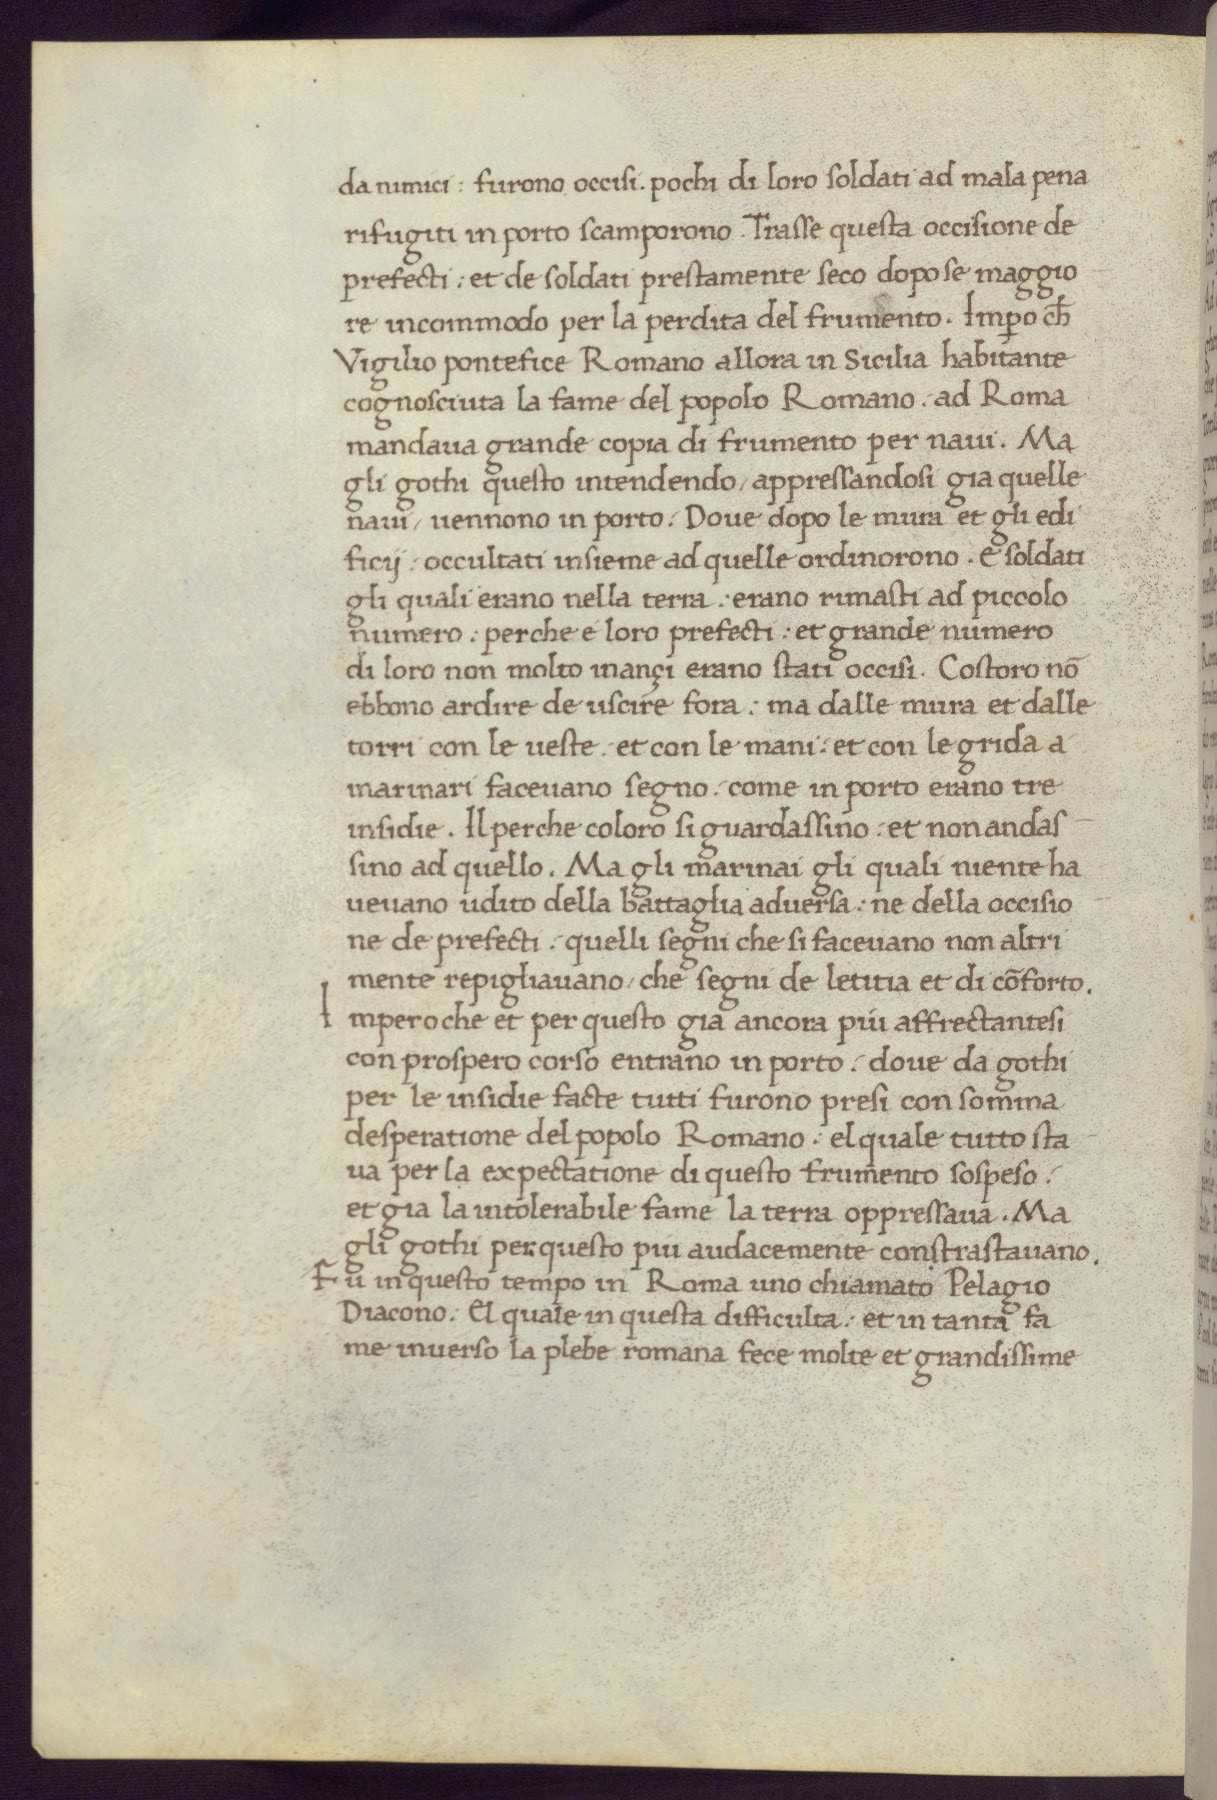 da nimici : furono occisi . pochi di loro soldati ad mala pena
rifugiti in porto scamporono . Trasse questa occisione de
prefecti : et de soldati prestamente seco dopo se maggio
re incommodo per la perdita del frumento . Imꝑo ch̄
Vigilio pontefice Romano allora in Sicilia habitante
cognosciuta la fame del popolo Romano : ad Roma
mandaua grande copia di frumento per naui . Ma
gli gothi questo intendendo / appressandosi gia quelle
naui / uennono in porto : Doue dopo le mura et gli edi
ficij : occultati insieme ad quelle ordinorono . E soldati
gli quali erano nella terra : erano rimasti ad piccolo
numero : perche e loro prefecti : et grande numero
di loro non molto inançi erano stati occisi . Costoro nō
ebbono ardire de uscire fora : ma dalle mura et dalle
torri con le ueste : et con le mani : et con le grida a
marinari faceuano segno : come in porto erano tre
insidie . Il perche coloro si guardassino : et non andas
sino ad quello . Ma gli marinai gli quali niente ha
ueuano udito della battaglia aduersa : ne della occisio
ne de prefecti : quelli segni che si faceuano non altri
mente repigliauano / che segni de letitia et di cōforto .
Imperoche et per questo gia ancora piu affrectantesi
con prospero corso entrano in porto : doue da gothi
per le insidie facte tutti furono presi con somma
desperatione del popolo Romano : el quale tutto sta
ua per la expectatione di questo frumento sospeso :
et gia la intolerabile fame la terra oppressaua . Ma
gli gothi per questo piu audacemente constrastauano .
Fu in questo tempo in Roma uno chiamato Pelagio
Diacono : El quale in questa difficulta : et in tanta fa
me inuerso la plebe romana fece molte et grandissime